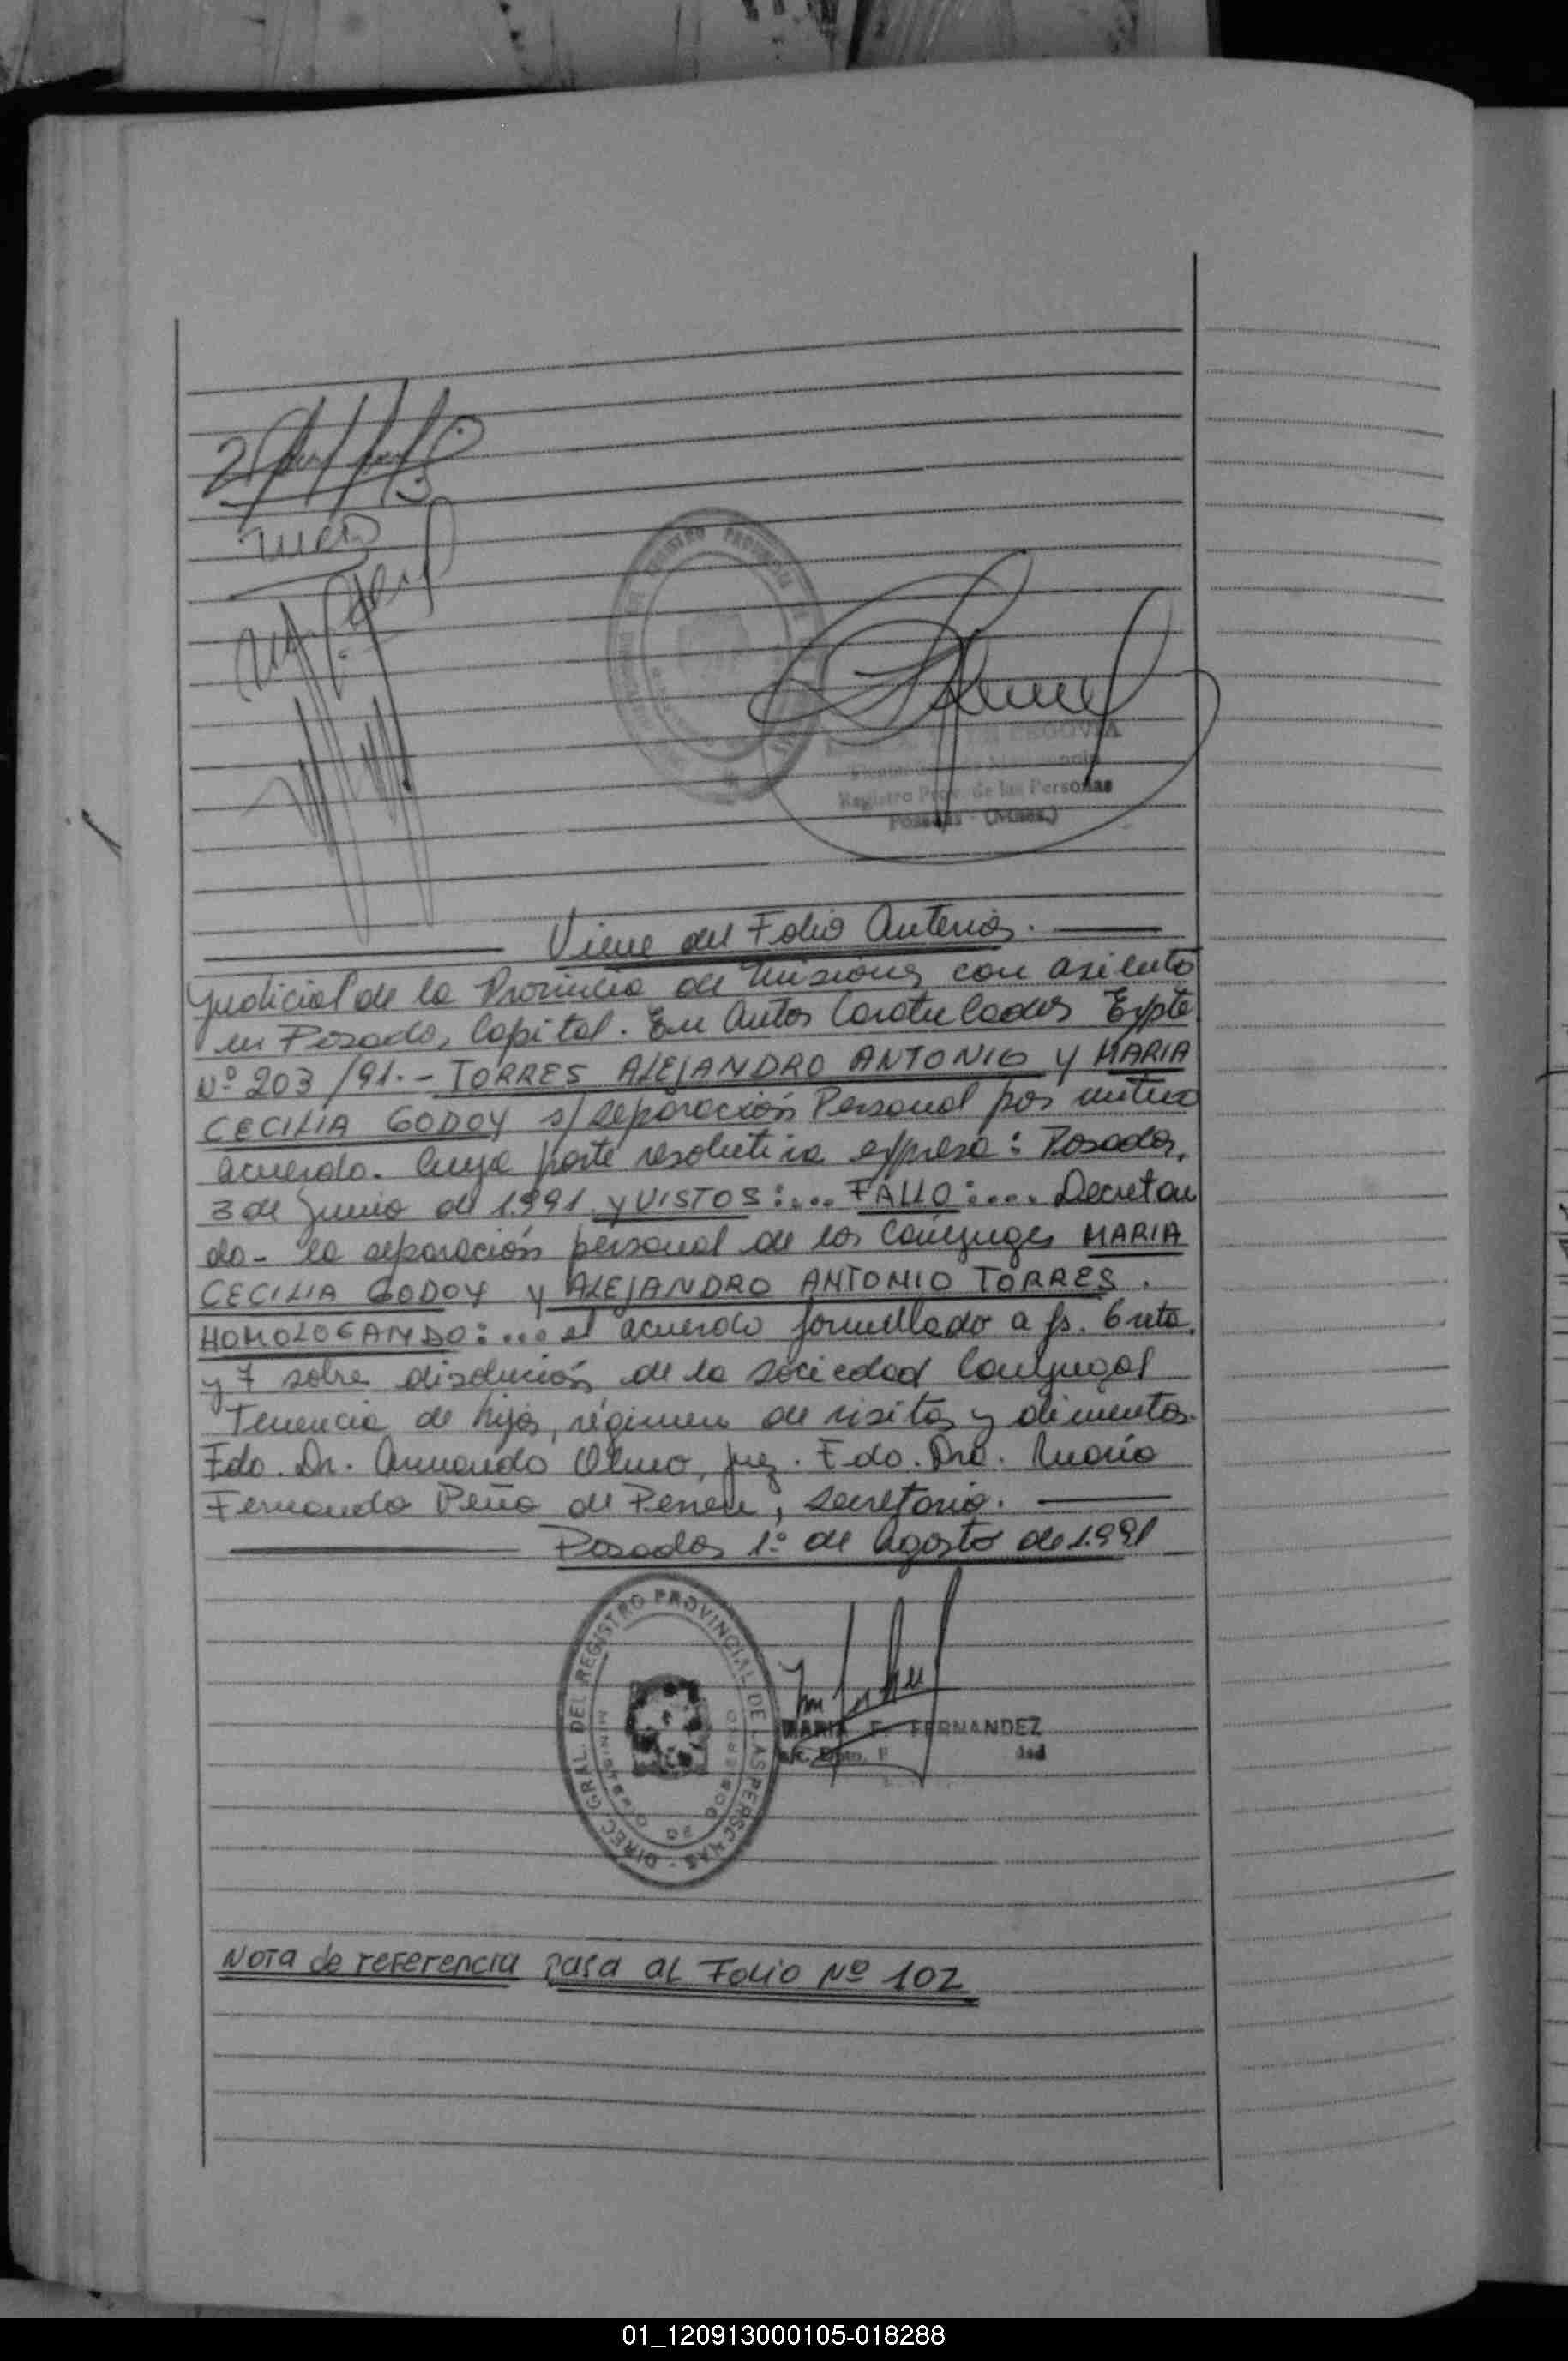 SEGOVIA
Registro Prov. de las Personas
Posadas - (Mnes.)
Viene del Folio Anterior.
Judicial de la Provincia de Misiones con asiento
en Posadas, Capital. En Autos Caratulados Expte
Nº 203/91.- TORRES ALEJANDRO ANTONIO y MARIA
CECILIA GODOY s/ separación Personal por mutuo
acuerdo. Cuya parte resolutiva expresa: Posadas,
3 de Junio de 1.991. y VISTOS:... FALLO:.... Decretan
do- la separación personal de los Cónyuges MARIA
CECILIA GODOY y ALEJANDRO ANTONIO TORRES.
HOMOLOGANDO:... el acuerdo formullado a fs. 6 vta.
y 7 sobre disolución de la Sociedad Conyugal
Tenencia de hijos, régimen de visitas y alimentos.
Fdo. Dr. Armando Olmo, Juez. Fdo. Dra. María
Fernanda Peña de Perien, Secretaria.
Posadas 1º de Agosto de 1.991
DIREC. GRAL. DEL REGISTRO PROVINCIAL DE LAS PERSONAS
MINISTERIO DE GOBIERNO
MARIA F. FERNANDEZ
a/c. Dpto.
Nota de referencia pasa al Folio Nº 102
01_120913000105-018288